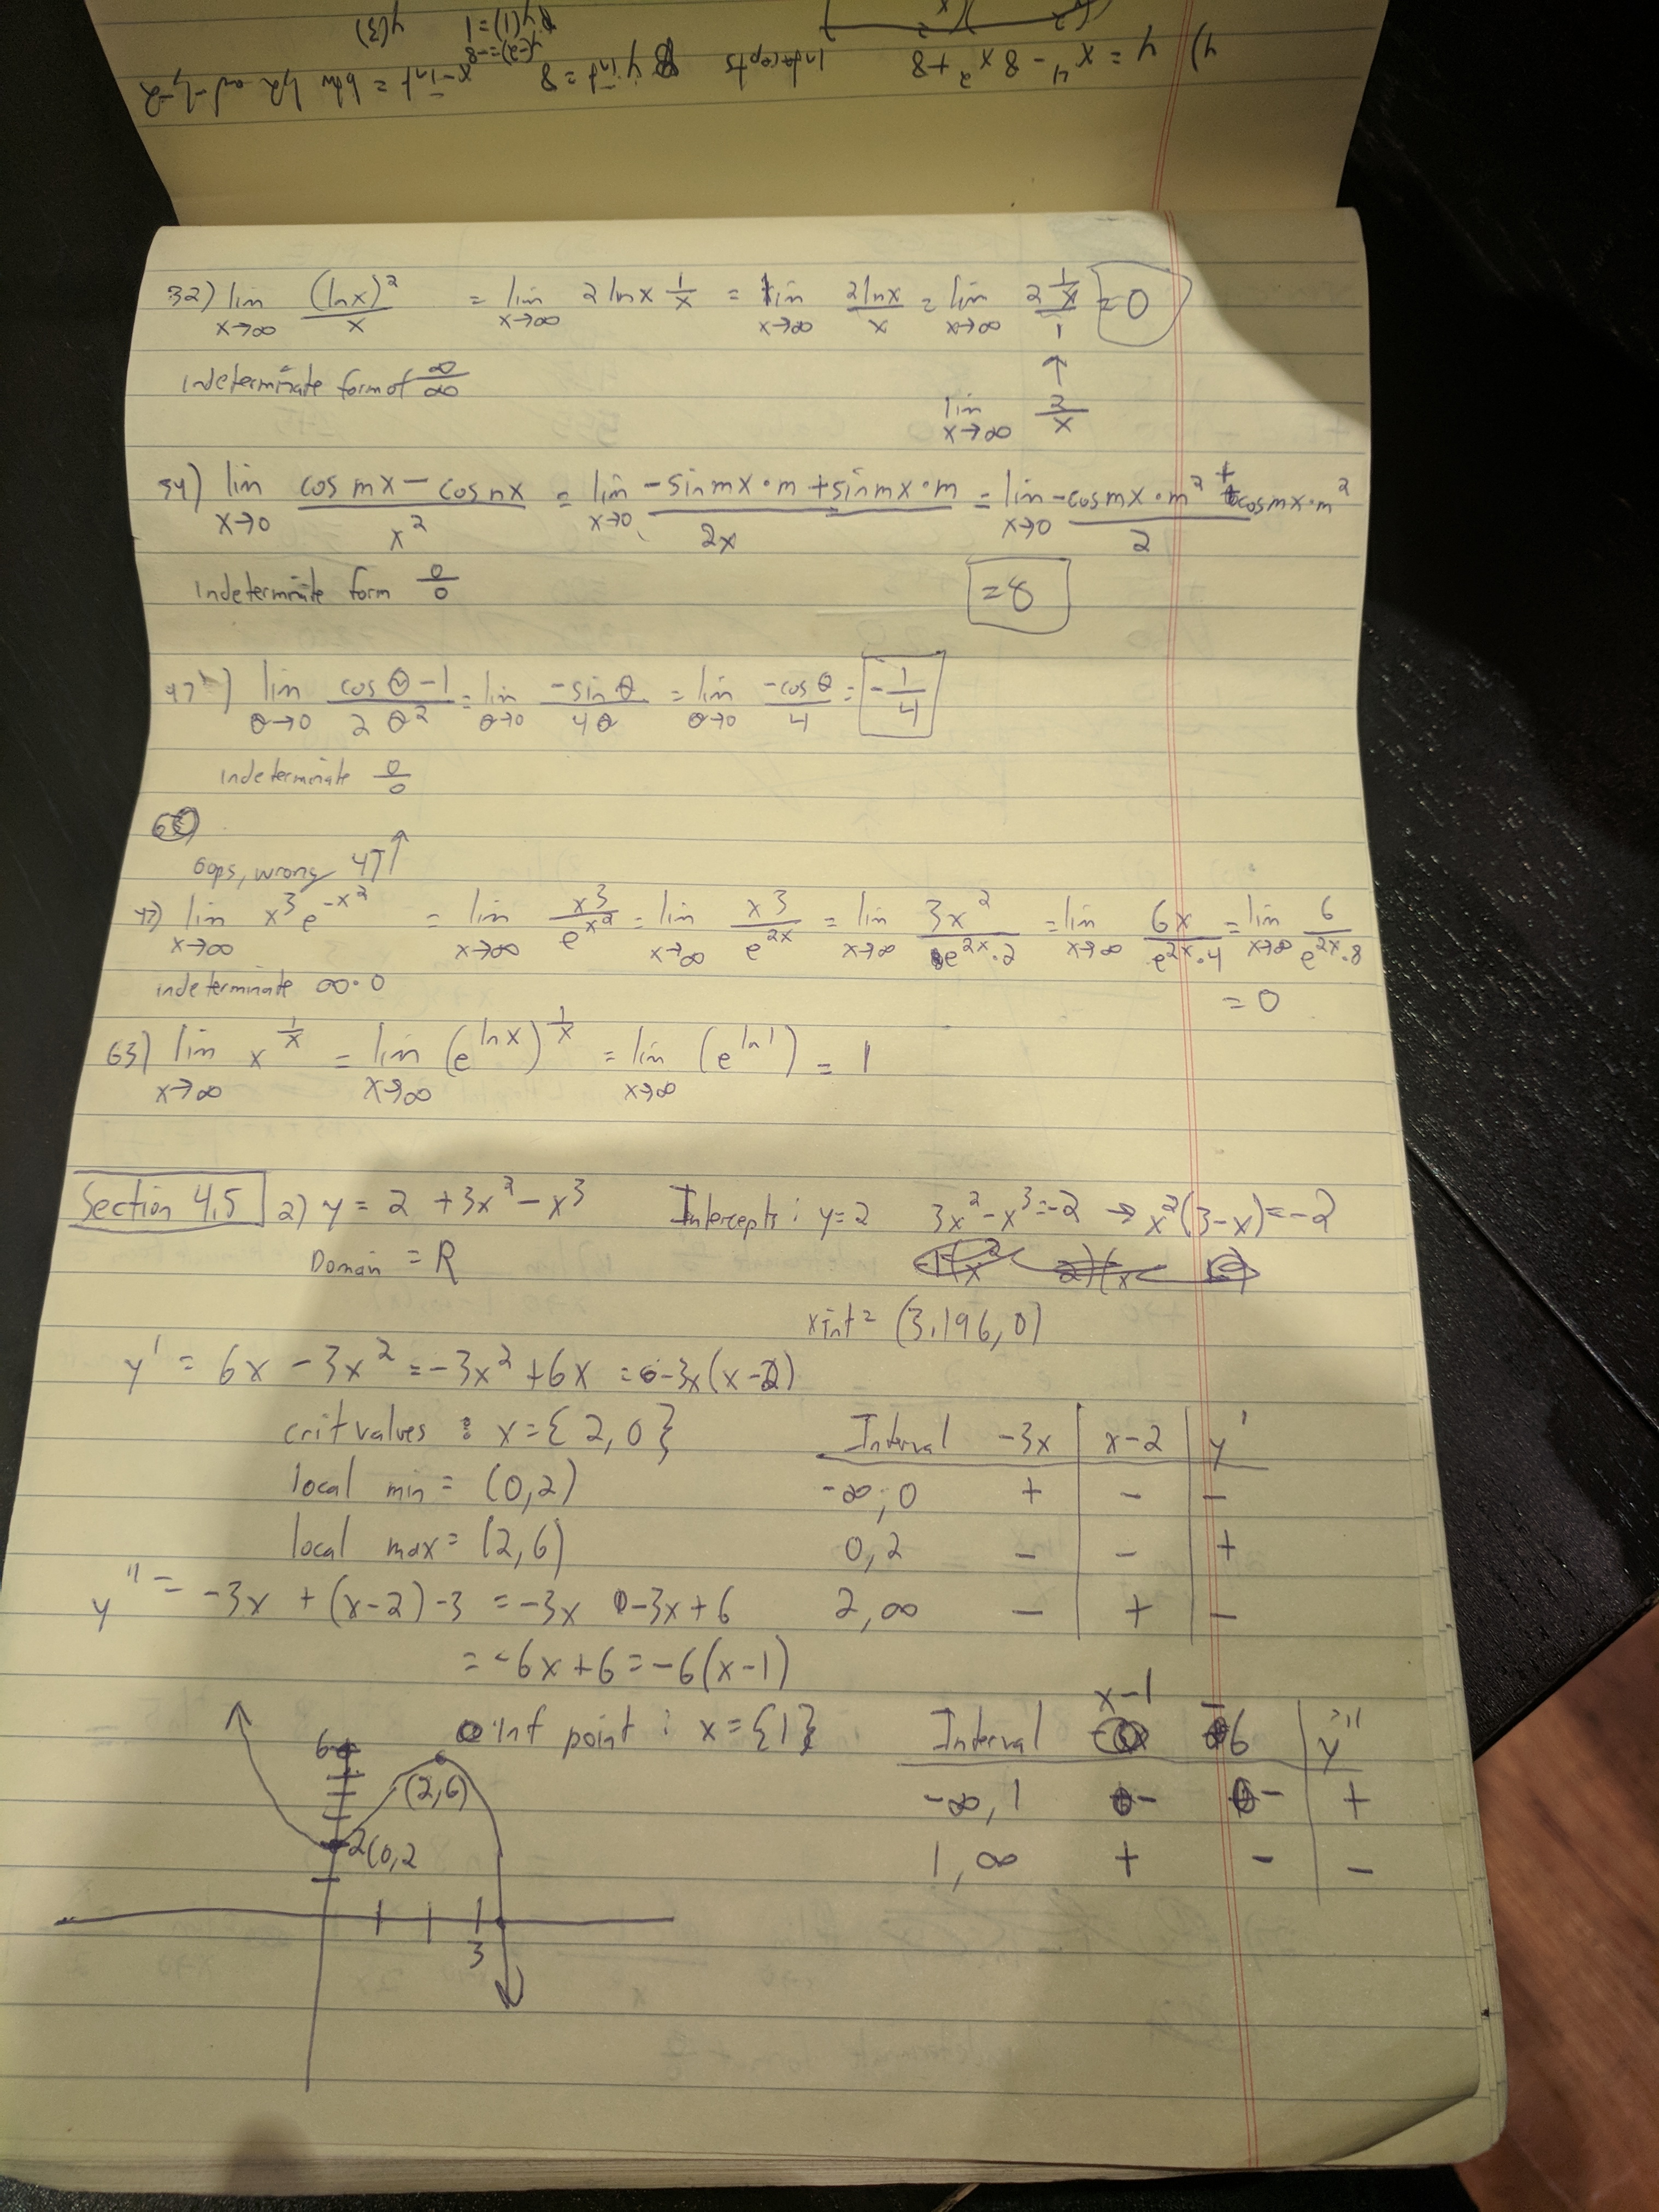 4) y = x⁴ - 8x² + 8 Intercepts y int = 8 x-int = btw 1,2 and -1,-2
y(-2) = -8
y(1) = 1 y(3)
32) lim x→∞ (ln x)² / x = lim x→∞ 2 ln x 1/x = lim x→∞ 2 ln x / x = lim x→∞ 2 1/x / 1 = 0
Indeterminate form of ∞/∞
↑
lim x→∞ 2/x
54) lim x→0 cos mx - cos nx / x² = lim x→0 -sin mx · m + sin mx · m / 2x = lim x→0 -cos mx · m² + cos mx · m² / 2
Indeterminate form 0/0
= 8
47) lim θ→0 cos θ - 1 / 2 θ² = lim θ→0 -sin θ / 4θ = lim θ→0 -cos θ / 4 = -1/4
indeterminate 0/0
Oops, wrong 47 ↑
47) lim x→∞ x³ e^(-x²) = lim x→∞ x³ / e^(x²) = lim x→∞ x³ / e^(2x) = lim x→∞ 3x² / e^(2x) · 2 = lim x→∞ 6x / e^(2x) · 4 = lim x→∞ 6 / e^(2x) · 8
indeterminate ∞ · 0
= 0
63) lim x→∞ x^(1/x) = lim x→∞ (e^(ln x))^(1/x) = lim x→∞ (e^(ln 1)) = 1
Section 4.5 2) y = 2 + 3x² - x³ Intercepts: y = 2 3x² - x³ = -2 → x²(3-x) = -2
Domain = R
x int = (3.196, 0)
y' = 6x - 3x² = -3x² + 6x = -3x(x-2)
crit values : x = {2, 0} Interval -3x x-2 y'
local min = (0, 2) -∞, 0 + - -
local max = (2, 6) 0, 2 - - +
y'' = -3x + (x-2) -3 = -3x -3x + 6 2, ∞ - + -
= -6x + 6 = -6(x-1)
inf point : x = {1} Interval x-1 -6 y''
-∞, 1 - - +
1, ∞ + - -
6
(2,6)
2 (0,2
3